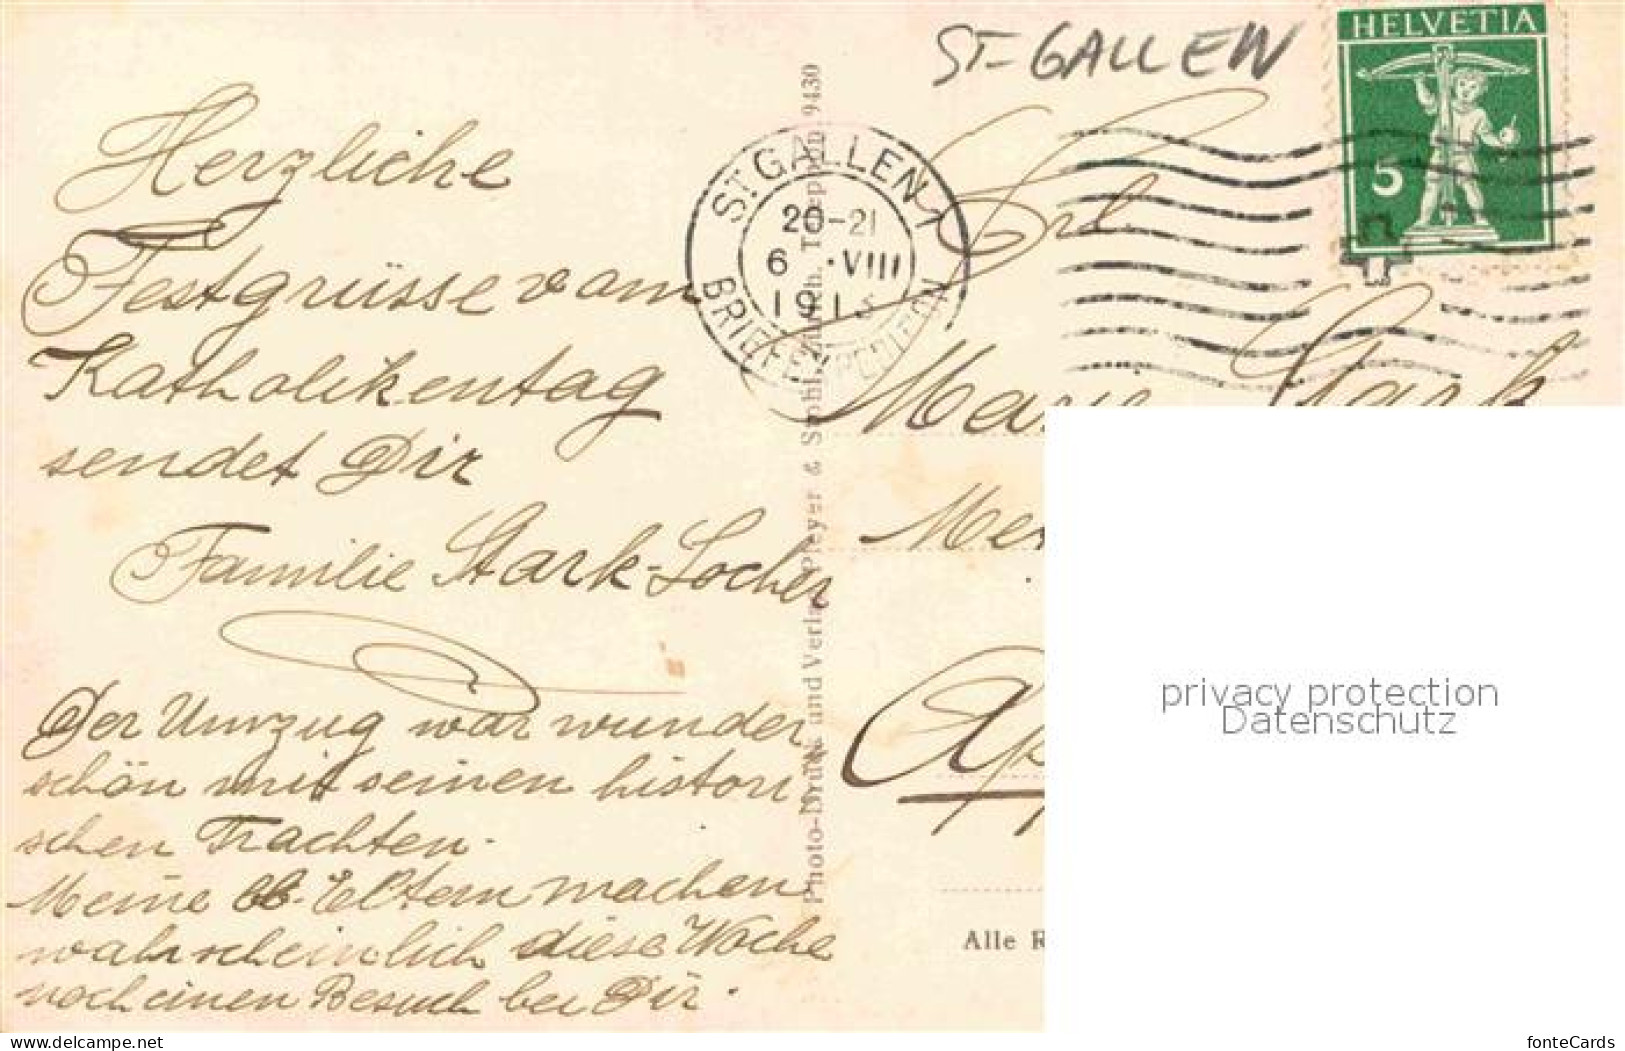 ST-GALLEN
HELVETIA
5
ST. GALLEN 1
20-21
6 ·VIII
191
BRIEFEXPEDITION
Herzliche
Festgrüsse vom
Katholikentag
sendet Dir
Familie Stark-Locher
Der Umzug war wunder
schön mit seinen histori
schen Trachten.
Meine lb. Eltern machen
wahrscheinlich diese Woche
noch einen Besuch bei Dir.
Photo-Druck und Verlag Pleyer & Telephon 9430
Frl
Marie Stark
Alle R
privacy protection
Datenschutz
www.delcampe.net
fonteCards